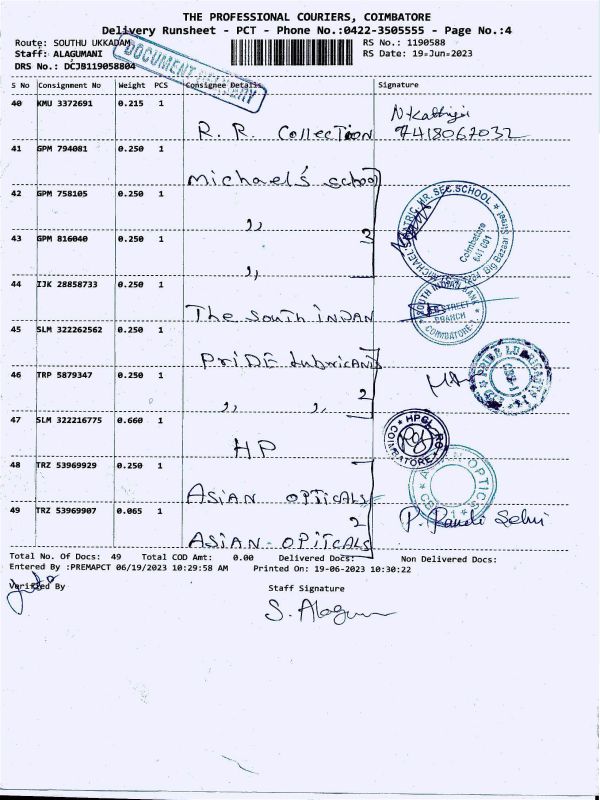 THE PROFESSIONAL COURIERS, COIMBATORE
Delivery Runsheet - PCT - Phone No.:0422-3505555 - Page No.:4
Route: SOUTHU UKKADAM RS No.: 1190588
Staff: ALAGUMANI RS Date: 19-Jun-2023
DRS No.: DCJB119058804
DOCUMENT DELIVERY
S No Consignment No Weight PCS Consignee Details Signature
40 KMU 3372691 0.215 1
R. R. Collection 7418067032
41 GPM 794081 0.250 1
Michael's school
42 GPM 758105 0.250 1
,,
43 GPM 816040 0.250 1 2
,,
MICHAEL'S MATRIC. HR. SEC. SCHOOL Big Bazaar Street Coimbatore 641 001
44 IJK 28858733 0.250 1
The South INDAN
SOUTH INDIAN BANK BRANCH COIMBATORE
45 SLM 322262562 0.250 1
PRiDE Lubricants
46 TRP 5879347 0.250 1 2
,, ,,
PRIDE LUBRICANTS
47 SLM 322216775 0.660 1
HP
HPCL RO COIMBATORE
48 TRZ 53969929 0.250 1
ASIAN OPTICALS
ASIAN OPTICS
49 TRZ 53969907 0.065 1 2
ASIAN OPITCALS
P. Pandi Selvi
Total No. Of Docs: 49 Total COD Amt: 0.00 Delivered Docs: Non Delivered Docs:
Entered By :PREMAPCT 06/19/2023 10:29:58 AM Printed On: 19-06-2023 10:30:22
Verified By Staff Signature